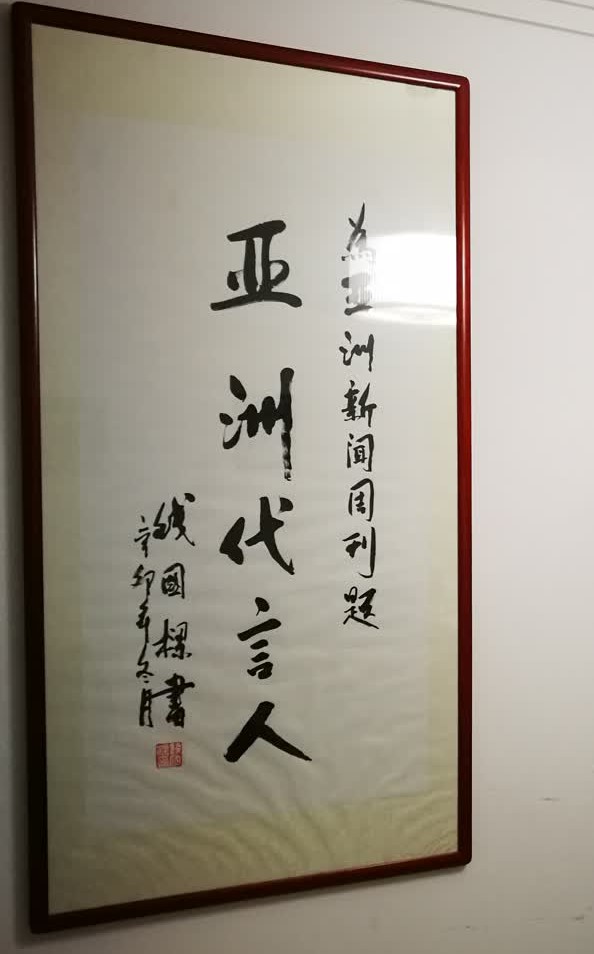 為亚洲新闻周刊题
亚洲代言人
钱國樑書
辛卯年冬月